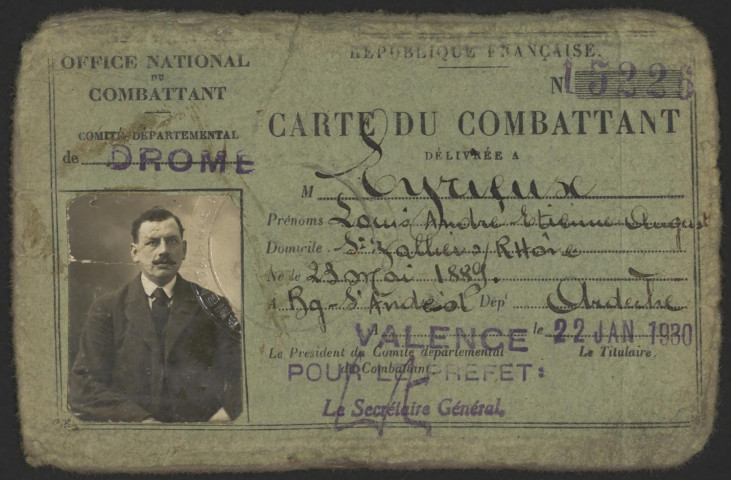 OFFICE NATIONAL
DU
COMBATTANT
COMITÉ DÉPARTEMENTAL
de DROME
RÉPUBLIQUE FRANÇAISE.
N 15226
CARTE DU COMBATTANT
DÉLIVRÉE A
M Eyrieux
Prénoms Louis André Etienne August
Domicile St Vallier s/ Rhône
Né le 23 mai 1889.
A Bg. St Andéol Dépt Ardèche
VALENCE le 22 JAN 1930
Le Président du Comité départemental Le Titulaire.
du Combattant
POUR LE PREFET:
Le Secrétaire Général.